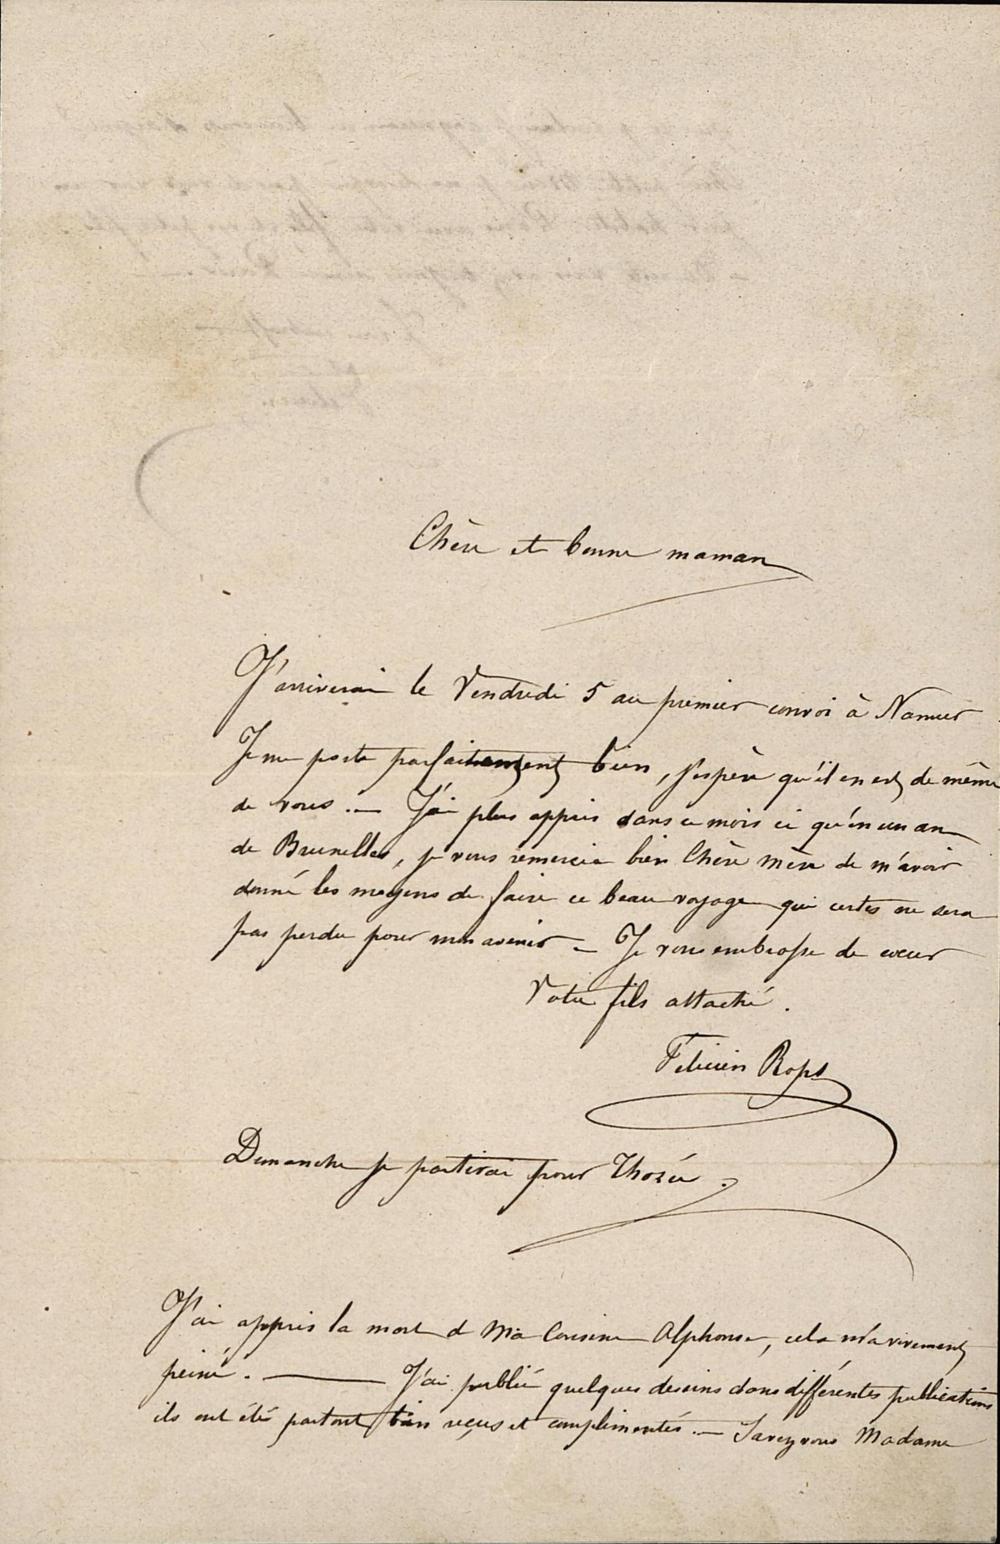 Chère et bonne maman
J'arriverai le Vendredi 5 au premier convoi à Namur.
Je me porte parfaitement bien, j'espère qu'il en est de même
de vous. — J'ai plus appris dans ce mois ci qu'en un an
de Bruxelles, je vous remercie bien Chère Mère de m'avoir
donné les moyens de faire ce beau voyage qui certes ne sera
pas perdu pour mon avenir — Je vous embrasse de coeur
Votre fils attaché.
Felicien Rops
Dimanche je partirai pour Thozée.
J'ai appris la mort d Ma Cousine Alphonse, cela m'a vivement
peiné. — J'ai publié quelques dessins dans différentes publications
ils ont étés partout bien reçus et complimentés. — Savez vous Madame